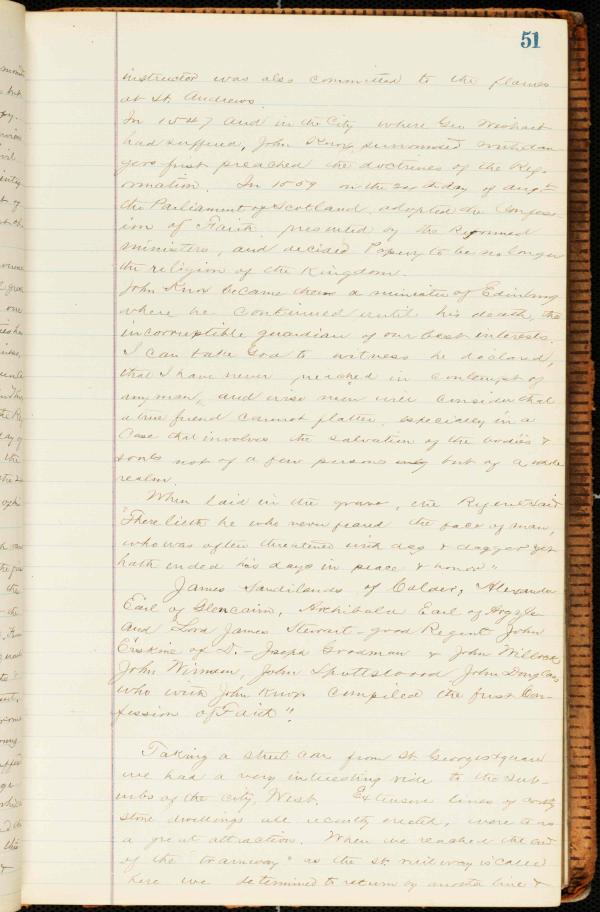 51
instructor was also committed to the flames
at St. Andrews.
In 1547 and in the City where Geo Wishart
had suffered, John Knox surrounded with dan
gers first preached the doctrines of the Ref-
ormation. In 1559 on the 24th day of Augt
the Parliament of Scotland adopted the Confess-
ion of Faith presented by the Reformed
ministers, and decided Popery to be no longer
the religion of the Kingdom.
John Knox became then a minister of Edinburg
where he continued until his death, the
incorruptible guardian of our best interests.
I can take God to witness he declared,
that I have never preached in contempt of
any man, and wise men will consider that
a true friend cannot flatter, especially in a
Case that involves the salvation of the bodies &
souls not of a few persons only but of a whole
realm.
When laid in the grave, the Regent said
"There lieth he who never feared the face of man,
who was often threatened with dag & dagger yet
hath ended his days in peace & honor"
James Sandilands of Calder, Alexander
Earl of Glencairn, Archibald Earl of Argyle
and Lord James Stewart - good Regent John
Erskine of D. - Joseph Goodman & John Willock
John Winram, John Spottswood John Douglas
who with John Knox compiled the first Con-
fession of Faith".
Taking a street car from St. Georges Square
we had a very interesting ride to the sub-
urbs of the City, West. Extensive lines of costly
stone dwellings all recently erected, were to us
a great attraction. When we reached the end
of the "tramway" as the st. railway is called
here we determined to return by another line &